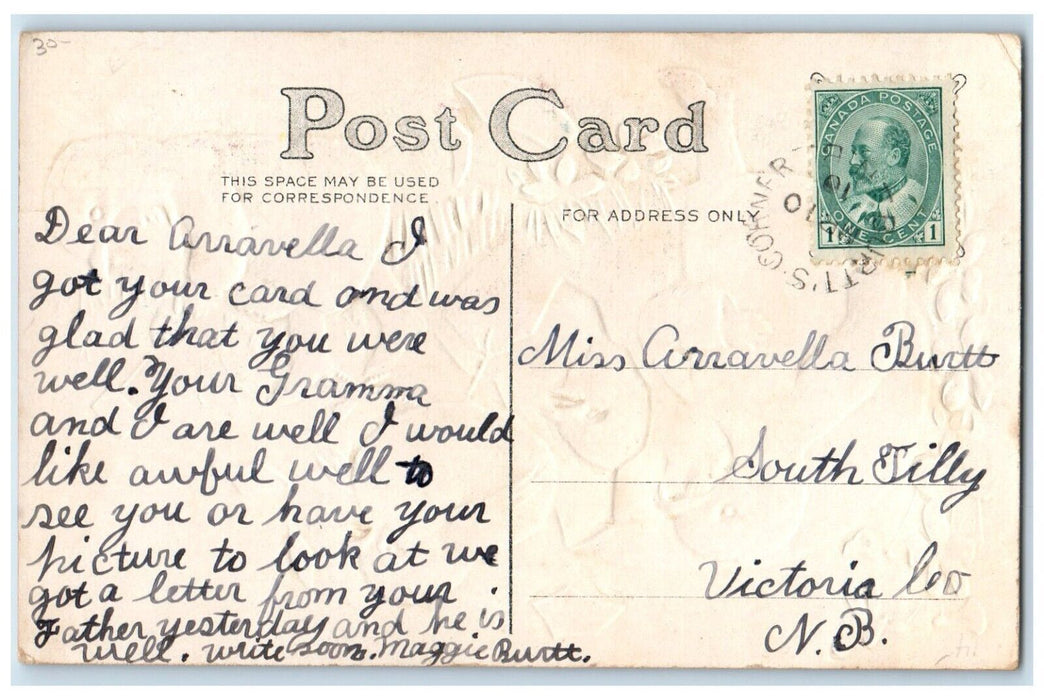 30-
Post Card
THIS SPACE MAY BE USED
FOR CORRESPONDENCE.
FOR ADDRESS ONLY
CANADA POSTAGE
1 ONE CENT 1
BURTT'S CORNER
10
Dear Arravella I
got your card and was
glad that you were
well. Your Gramma
and I are well I would
like awful well to
see you or have your
picture to look at we
got a letter from your
Father yesterday and he is
well. write soon. Maggie Burtt.
Miss Arravella Burtt
South Tilly
Victoria Co
N.B.